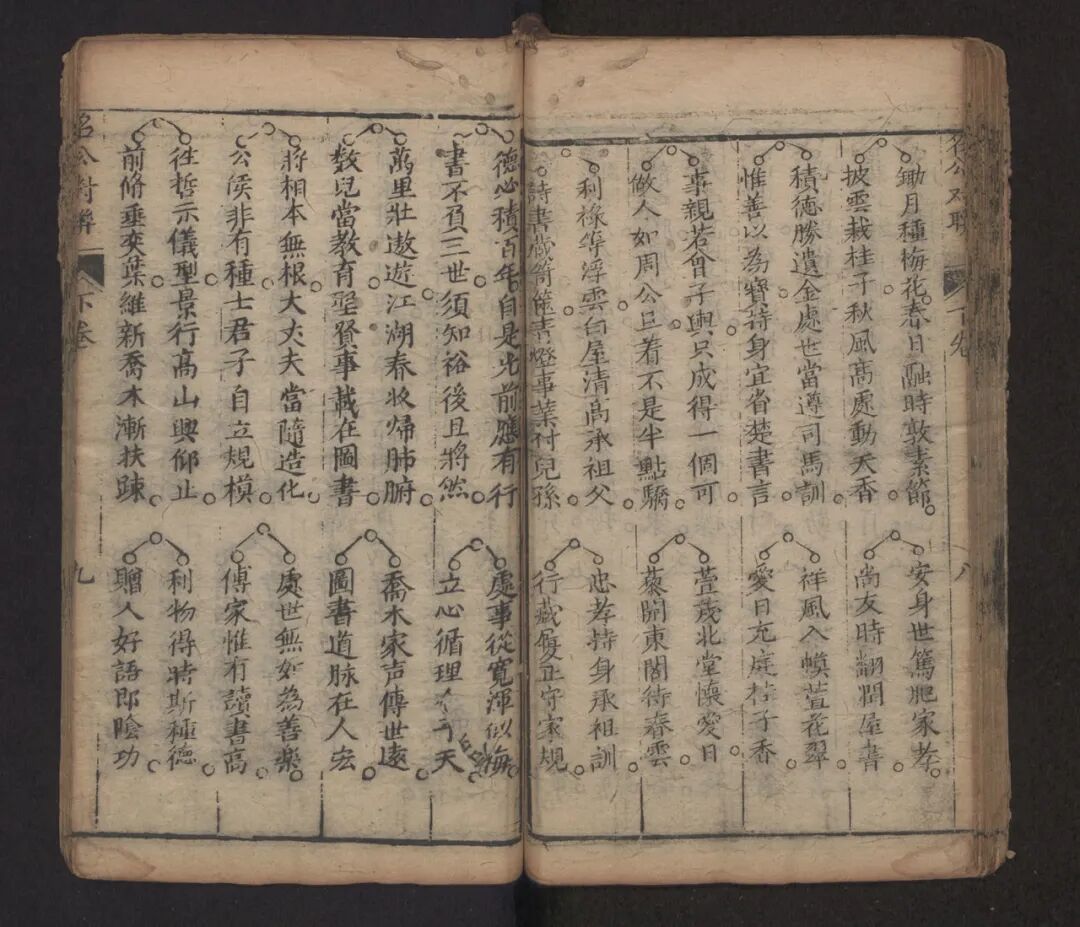 名公对联
下卷
八
鋤月種梅花春日融時敦素節
披雲栽桂子秋風高處動天香
積德勝遺金處世當遵司馬訓
惟善以為寶持身宜省楚書言
事親若曾子輿只成得一個可
做人如周公旦着不是半點驕
利祿等浮雲白屋清高承祖父
詩書藏笥篋青燈事業付兒孫
安身世篤肥家孝
尚友時翻潤屋書
祥風入幙萱花翠
愛日充庭桂子香
萱茂北堂懷愛日
藜開東閣待春雲
忠孝持身承祖訓
行藏履正守家規
德心積百年自是光前應有行
書不負三世須知裕後且將然
萬里壯遨遊江湖春收帰肺腑
数兒當教育聖賢事載在圖書
將相本無根大丈夫當隨造化
公侯非有種士君子自立規模
往哲示儀型景行高山興仰止
前脩垂奕葉維新喬木漸扶踈
處事從寬渾似海
立心循理 天
喬木家声傳世遠
圖書道脉在人宏
處世無如為善樂
傳家惟有讀書高
利物得時斯種德
贈人好語即陰功
名公对聨
下卷
九